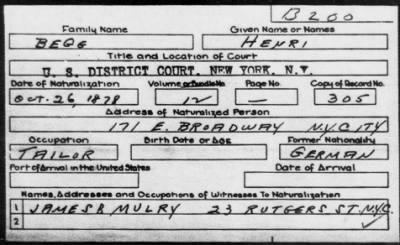 B 200
Family Name Given Name or Names
BEGG HENRI
Title and Location of Court
U. S. DISTRICT COURT, NEW YORK, N.Y.
Date of Naturalization Volume or Bundle No. Page No. Copy of Record No.
OCT. 26, 1878 12 — 305
Address of Naturalized Person
171 E. BROADWAY N.Y. CITY
Occupation Birth Date or Age Former Nationality
TAILOR GERMAN
Port of Arrival in the United States Date of Arrival
Names, Addresses and Occupations of Witnesses To Naturalization
1 JAMES B MULRY 23 RUTGERS ST. N.Y.C.
2